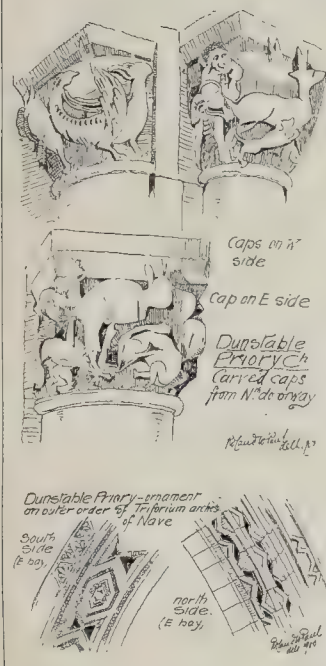 Caps on N
side
Cap on E side
Dunstable
Priory Ch
Carved caps
from Nth doorway
Roland W Paul
delt.
Dunstable Priory - ornament
on outer order of Triforium arches
of Nave
South
side
(E bay)
north
side.
(E bay)
Roland W Paul
delt 1900